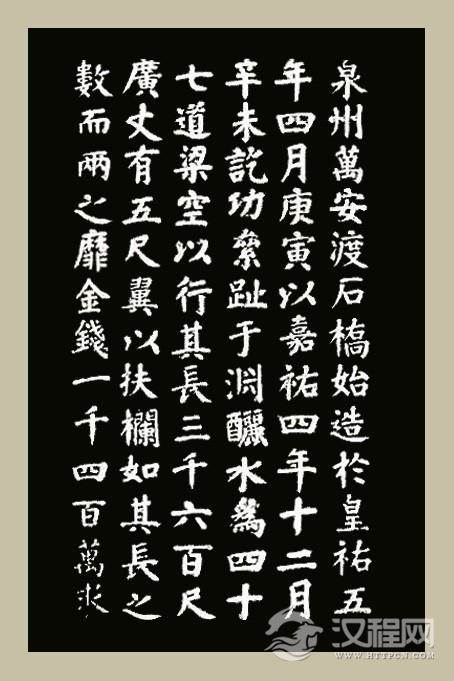 泉州萬安渡石橋始造於皇祐五
年四月庚寅以嘉祐四年十二月
辛未訖功絫趾于淵釃水為四十
七道梁空以行其長三千六百尺
廣丈有五尺翼以扶欄如其長之
數而兩之靡金錢一千四百萬求
汉程网
WWW.HTTPCN.COM